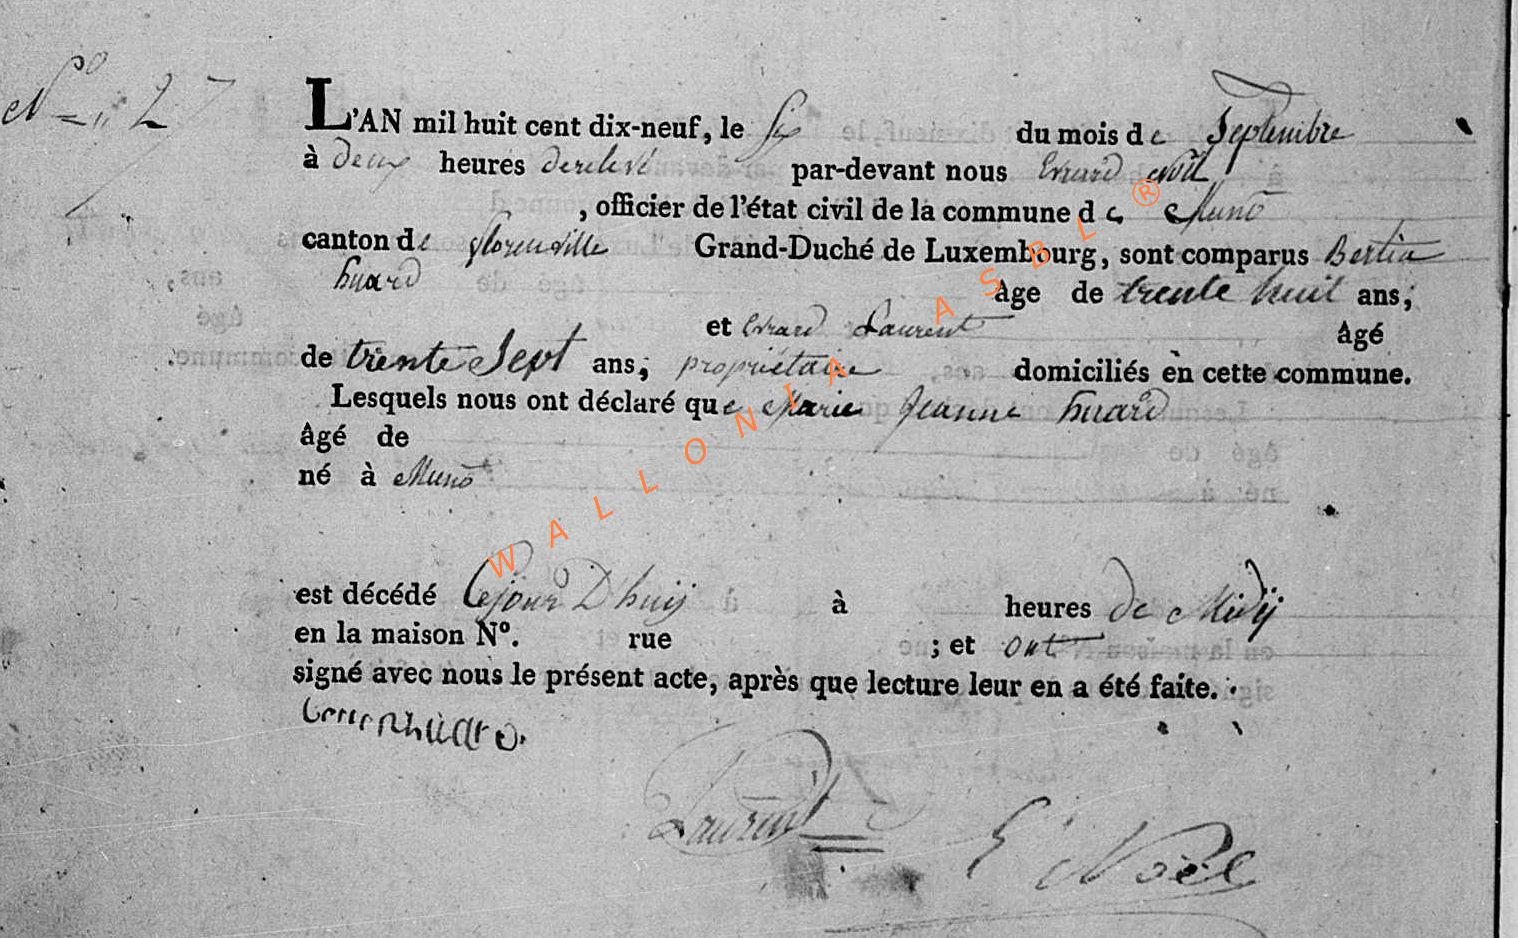 N° 27
L'AN mil huit cent dix-neuf, le Six du mois de Septembre
à deux heures de relevé par-devant nous Evrard Noël
, officier de l'état civil de la commune de Muno
canton de florenville Grand-Duché de Luxembourg, sont comparus Bertin
huard âge de trente huit ans;
et Evrard Laurent âgé
de trente Sept ans; propriétaire domiciliés en cette commune.
Lesquels nous ont déclaré que Marie Jeanne huard
âgé de
né à Muno
est décédé Cejourd'huij à heures de Midij
en la maison N°. rue ; et ont
signé avec nous le présent acte, après que lecture leur en a été faite.
Laurent
E Noël
WALLONIA ASBL ®